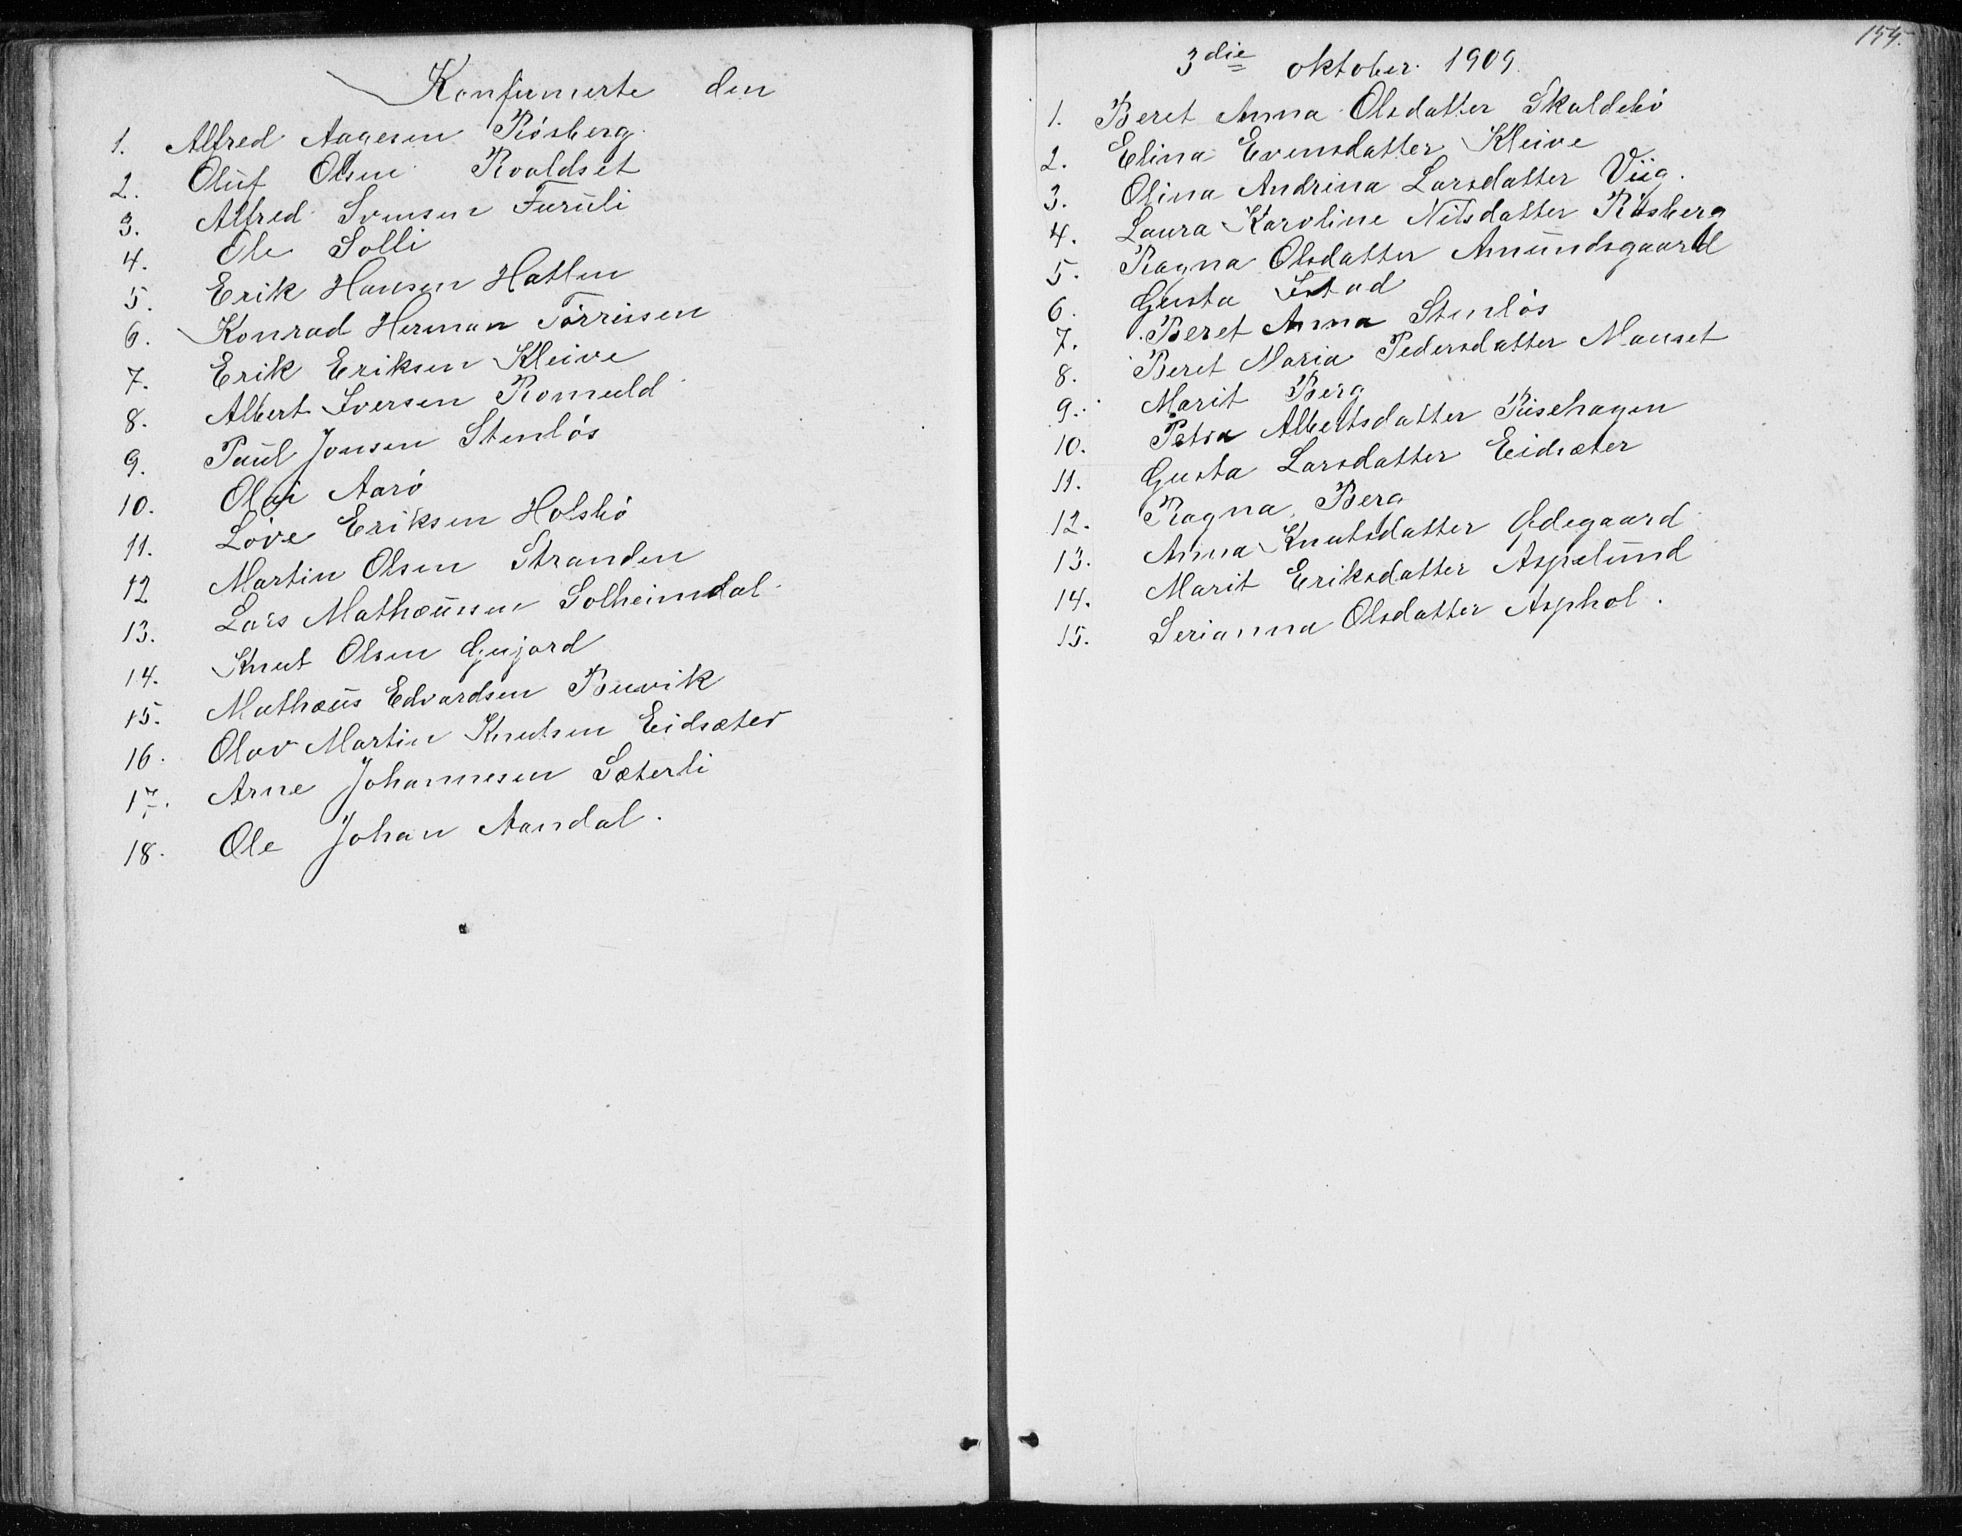 Konfirmerte den
1. Alfred Aagesen Røsberg.
2. Oluf Olsen Roaldset
3. Alfred Svensen Furuli
4. Ole Solli
5. Erik Hansen Hatlen
6. Konrad Herman Tørrissen
7. Erik Eriksen Kleive
8. Albert Iversen Romuld
9. Paul Jonsen Stenløs
10. Olai Aarø
11. Løve Eriksen Holsbø
12 Martin Olsen Stranden
13. Lars Mathæussen Solheimdal.
14. Knut Olsen Gujord
15. Mathæus Edvardsen Buvik
16. Olav Martin Knutsen Eidsæter
17. Arne Johannesen Sæterli
18. Ole Johan Aandal.
155.
3die oktober 1909.
1. Beret Anna Olsdatter Skaldebø
2. Elina Evensdatter Kleive
3. Olina Andrina Larsdatter Viig.
4. Laura Karoline Nilsdatter Røsberg
5. Ragna Olsdatter Amundsgaard
6. Gusta Istad
7. Beret Anna Stenløs
8. Beret Maria Pedersdatter Mauset
9. Marit Berg
10. Petra Albertsdatter Risehagen
11. Gusta Larsdatter Eidsæter
12. Ragna Berg
13. Anna Knutsdatter Ødegaard
14. Marit Eriksdatter Aspelund
15. Serianna Olsdatter Asphol.